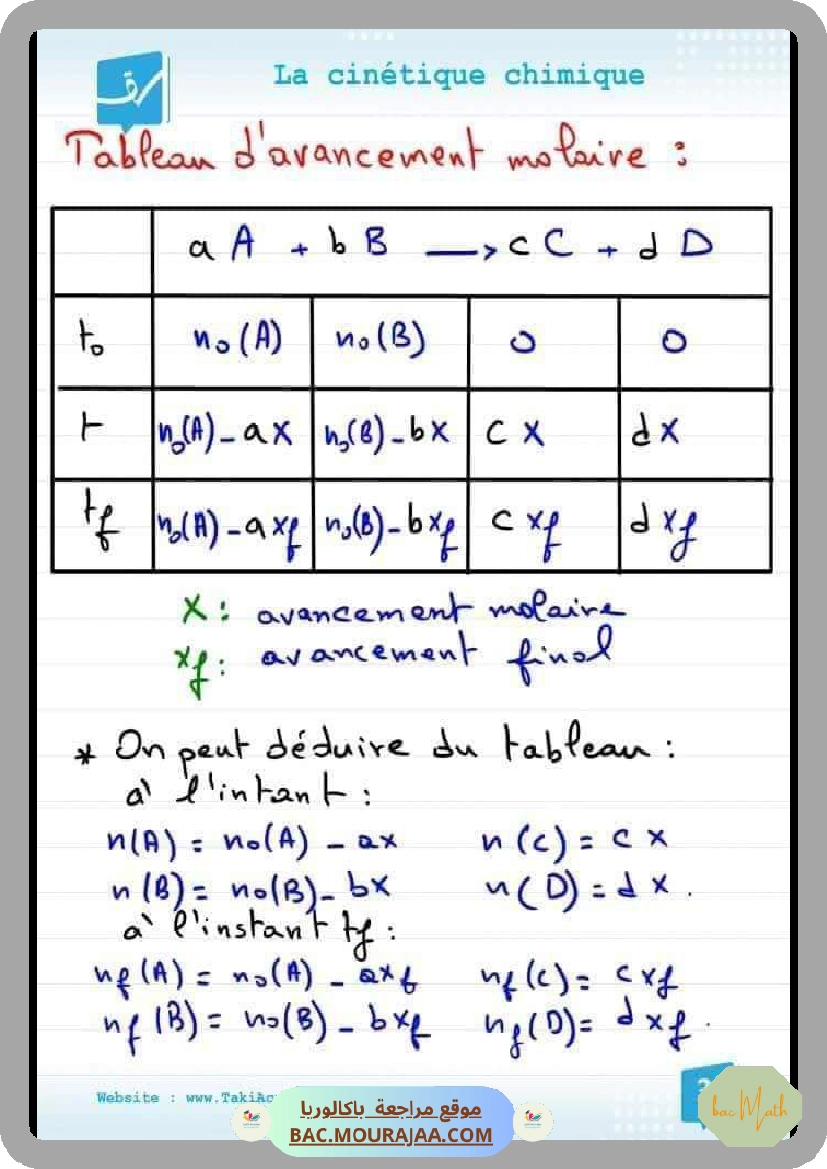 La cinétique chimique
Tableau d'avancement molaire :
a A + b B → c C + d D
t₀ n₀(A) n₀(B) 0 0
t n₀(A) - ax n₀(B) - bx c x dx
tf n₀(A) - axf n₀(B) - bxf c xf d xf
X : avancement molaire
xf : avancement final
* On peut déduire du tableau :
à l'intant :
n(A) = n₀(A) - ax n(c) = c x
n(B) = n₀(B) - bx n(D) = d x .
à l'instant tf :
nf(A) = n₀(A) - axf nf(c) = c xf
nf(B) = n₀(B) - bxf nf(D) = d xf .
Website : www.TakiAc
موقع مراجعة باكالوريا
BAC.MOURAJAA.COM
bac Math